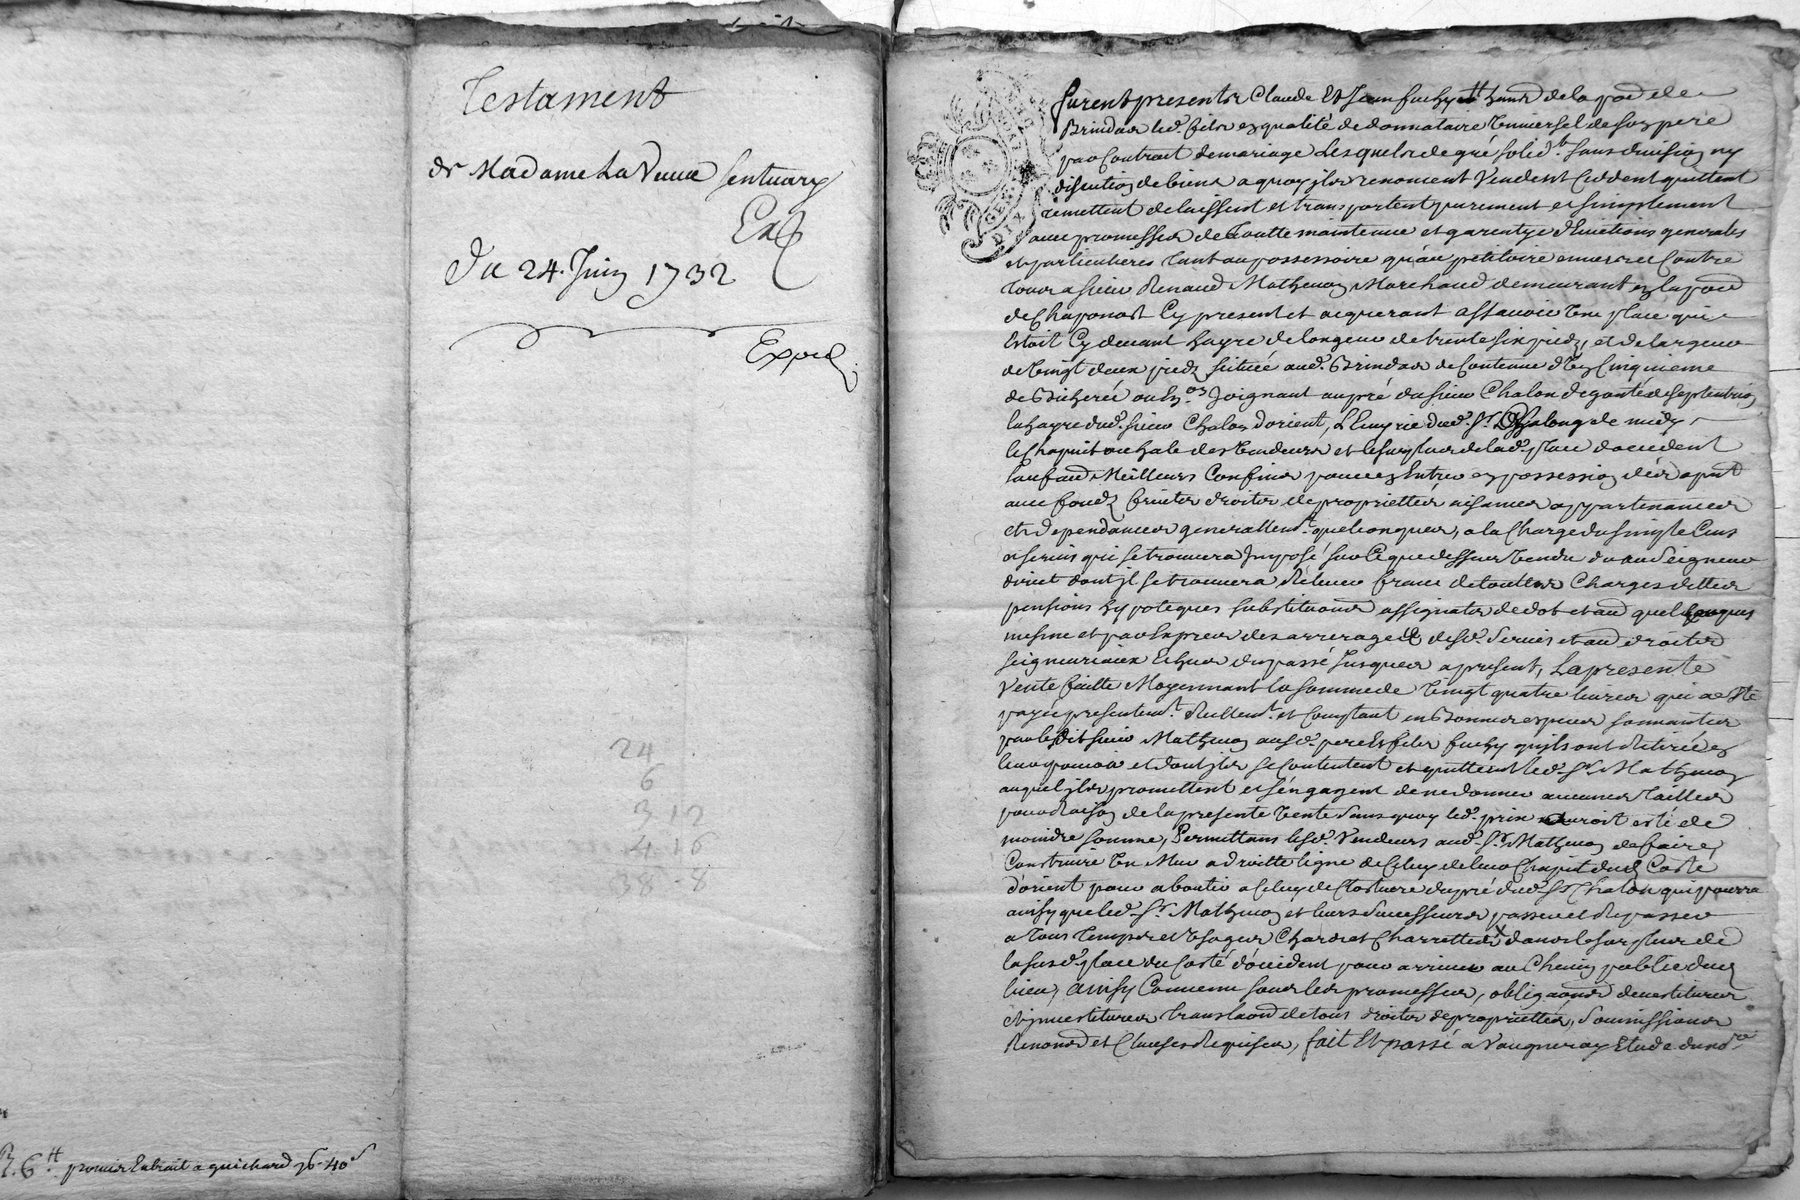 Testament
de Madame La Veuve Sentuary
Ext
Du 24. Juin 1732
Exped
24
6
3 12
4 16
38 - 8
R. 6 H premier Extrait a guichard
GENER LYON
DIX
furent presents Claude Et Jean fuchy habns de la parr de
Brindas led. fils en qualité de donnataire universel de son pere
par Contract de mariage Lesquels de gré solid. sans division ny
discution de biens a quoy ils renoncent Vendent Ceddent quittent
remettent delaissent et transportent purement et simplement
avec promesses de toutte maintenue et garentye d'Evictions generales
et particulieres tant au possessoire qu'au petitoire envers et Contre
tous a sieur Renaud Mathevon Marchand demeurant en la parr
de Chaponost Cy present et acquerant assavoir Une place qui
Estoit Cy devant hayre de longeur de trente six pieds, et de largeur
de Vingt deux pieds scituée aud. Brindas de Contenue d'Un Cinquieme
de Bicherée ou Env. Joignant au pré du sieur Chalon de septentrion
la hayre dud. sieur Chalon d'orient, L'Ecuyrie dud. Sr. Chalon de midy
le Chapit ou hale des Vendeurs et le surplus de la d. place d'occident
sauf aud. Meilleurs Confins pour en Entrer en possession des a pnt
avec fonds fruits droits de proprietté aisances appartenances
et dependances generallemt. quelconques, a la Charge du simple Cens
et servis qui se trouvera Imposé sur Ce que dessus Vendu du au Seigneur
direct dont il se trouvera Relever franc de touttes Charges dettes
pensions hypoteques substituaons assignats de dot et au quelconques
mesme et par Exprés des arrerages desd. Servis et au droits
seigneuriaux Echus du passé Jusques a present, La presente
Vente faitte Moyennant la somme de Vingt quatre livres qui a Eté
payée presentemt. Reellemt. et Comptant en Bonnes especes sonnantes
par ledit sieur Mathevon ausd. pere Et fils fuchy qu'ils ont Retirée
leur pouvoir et dont ils se Contentent et quittent led. Sr. Mathevon
auquel ils promettent et s'engagent de ne donner aucunes tailles
pour Raison de la presente Vente sans quoy led. prix auroit esté de
moindre somme, Permettans lesd. Vendeurs aud. Sr. Mathevon de faire
Construire Un Mur a droitte ligne de Celuy de leur Chapit du Costé
d'orient pour aboutir a Celuy de Closture du pré dud. Sr. Chalon qui pourra
ainsy que led. Sr. Mathevon et leurs Successeurs passer et Repasser
a tous temps et Usages Chars et Charrettes dans le surplus de
la susd. place du Costé d'occident pour arriver au Chemin public dud.
lieu, Ainsy Convenu sous les promesses, obligaons devestitures
et investitures translaons de tous droits de proprietté, soumissions
Renons et Clauses Requises, fait Et passé a Vaugneray Etude du no.re